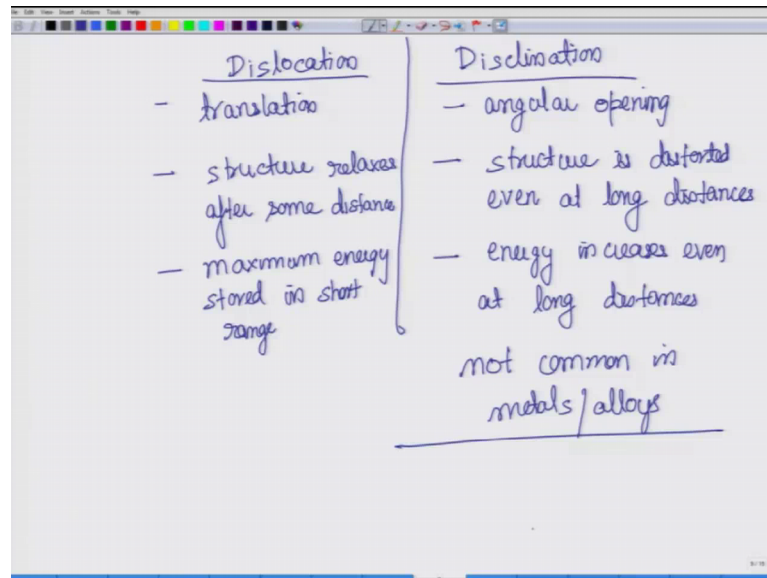 Edit View Insert Actions Tools Help
Dislocation
- translation
- structure relaxes
after some distance
- maximum energy
stored in short
range
Disclination
- angular opening
- structure is distorted
even at long distances
- energy increases even
at long distances
not common in
metals/alloys